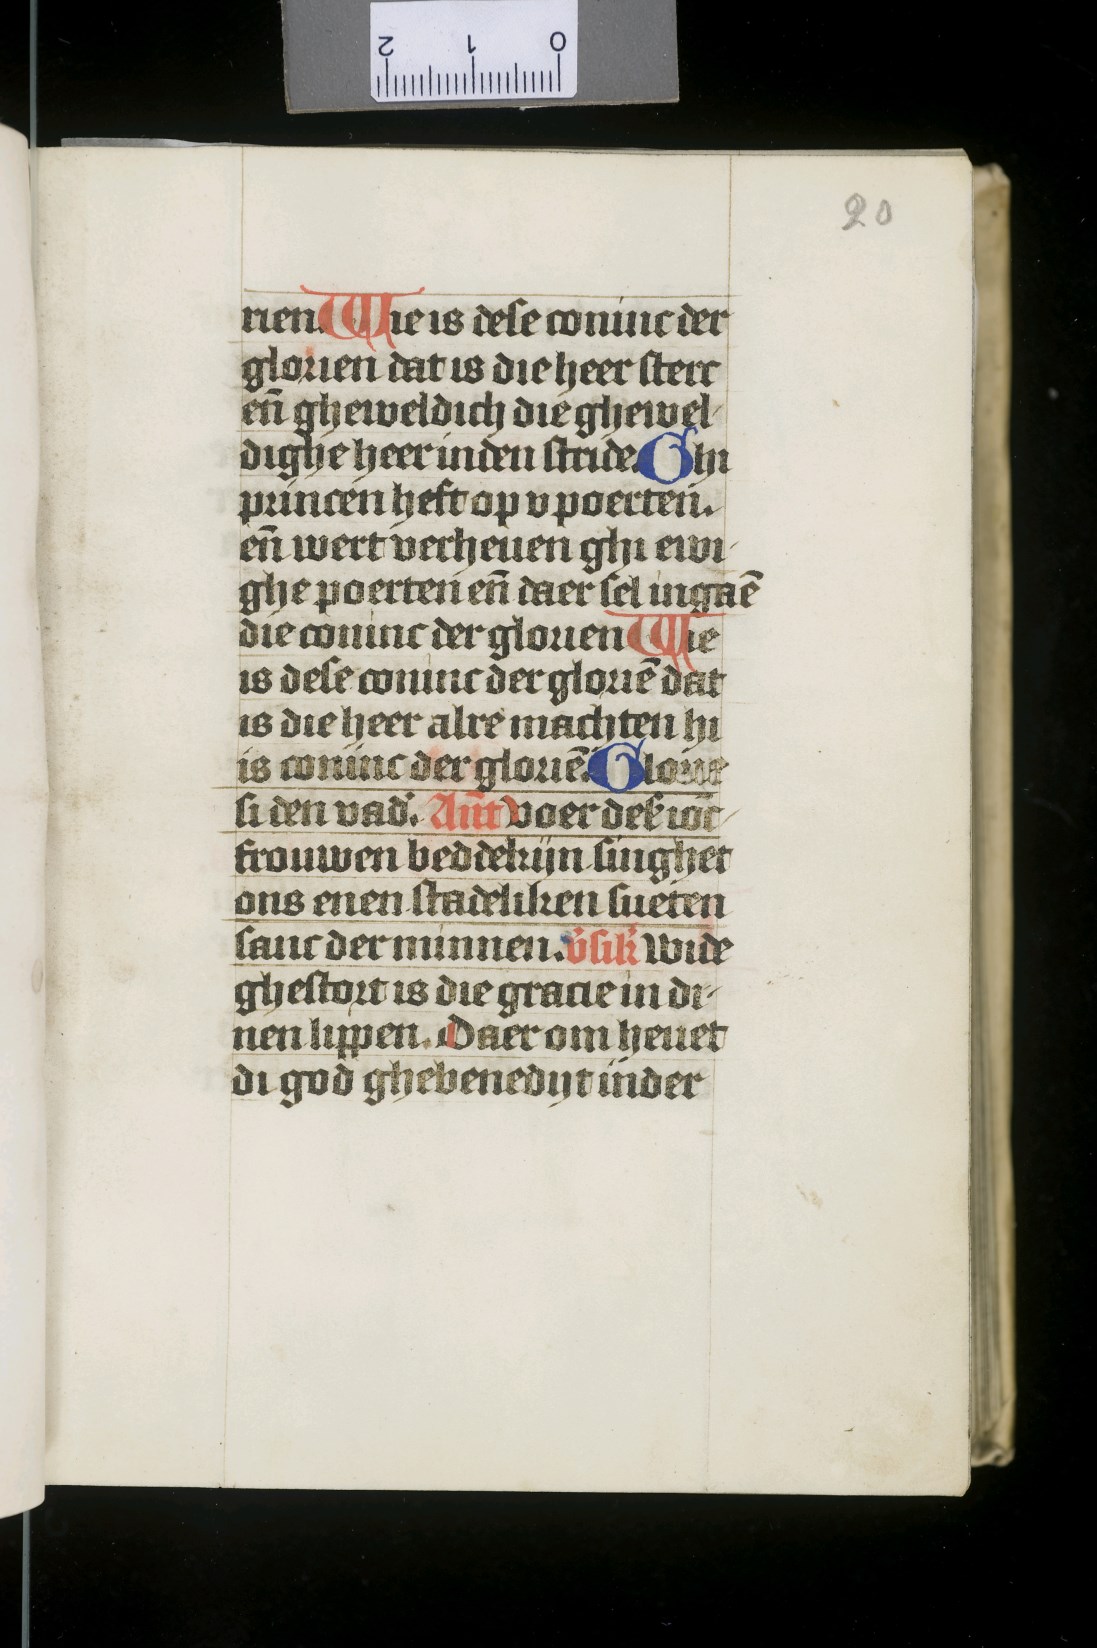 2 1 0
20
rien. Wie is dese coninc der
glorien dat is die heer sterc
en̄ gheweldich die ghewel-
dighe heer inden stride. Ghi
princen heft op v poerten.
en̄ wert verheuen ghi ewi-
ghe poerten en̄ daer sel ingaē
die coninc der glorien Wie
is dese coninc der gloriē dat
is die heer alre machten hi
is coninc der gloriē. Glorie
si den vad'. An̄t voer des' ionc-
frouwen beddekijn singhet
ons enen stadeliken sueten
sanc der minnen. v'sik' Wide
ghestort is die gracie in di-
nen lippen. Daer om heuet
di god ghebenedijt inder